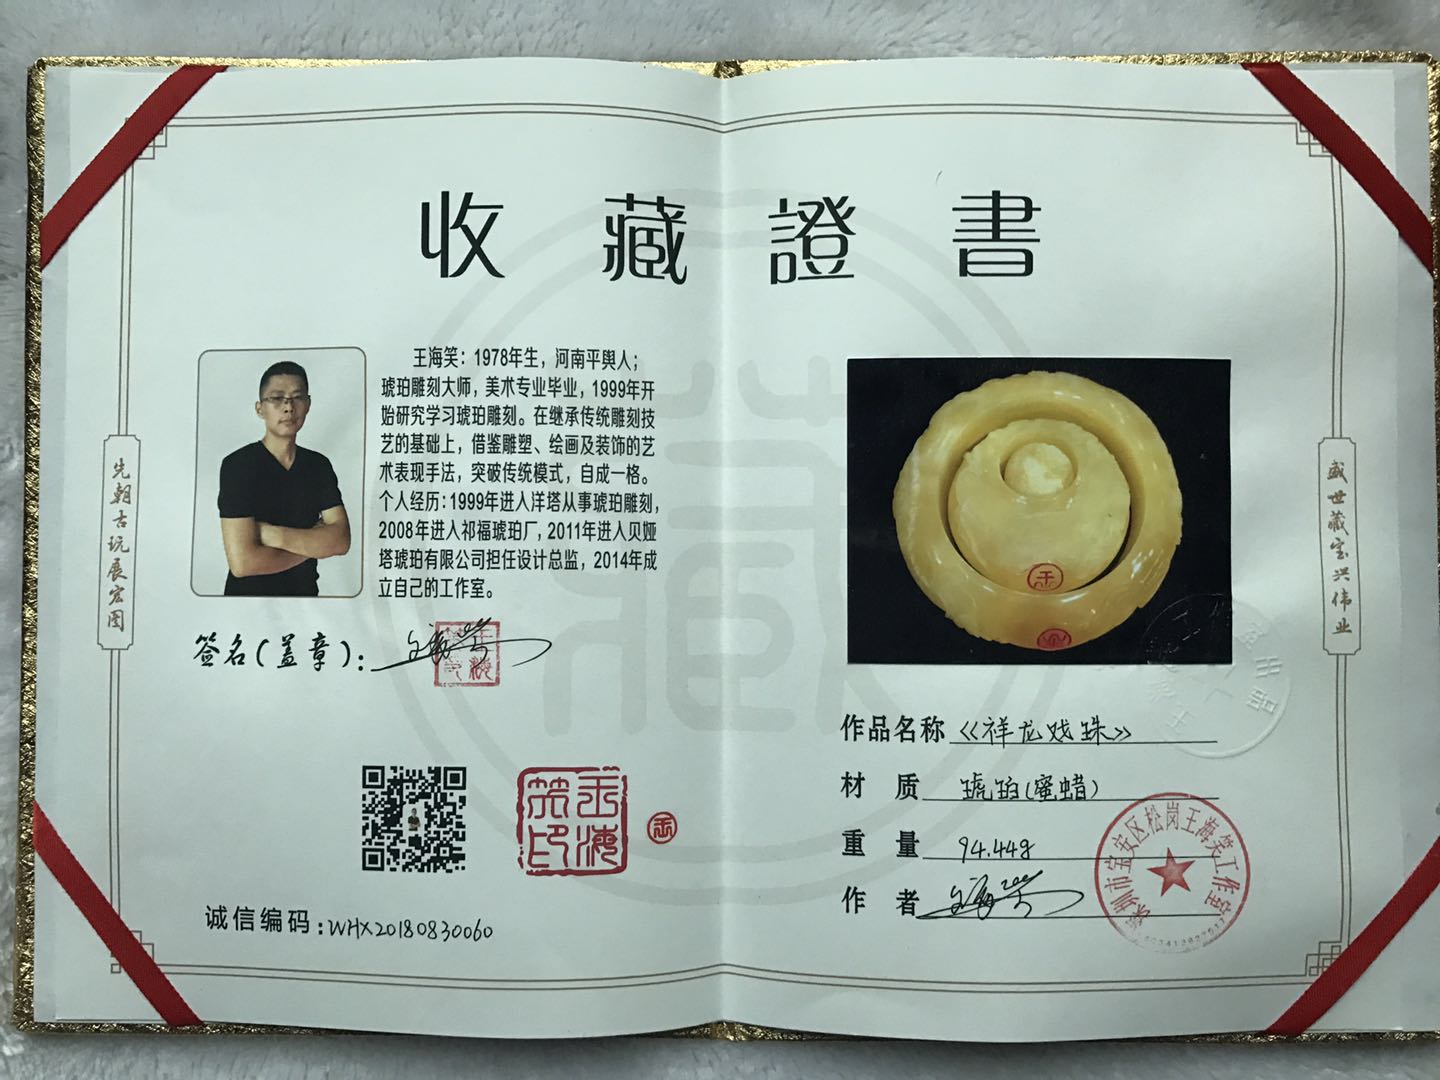 收藏證書
王海笑：1978年生，河南平舆人；
琥珀雕刻大师，美术专业毕业，1999年开
始研究学习琥珀雕刻。在继承传统雕刻技
艺的基础上，借鉴雕塑、绘画及装饰的艺
术表现手法，突破传统模式，自成一格。
个人经历：1999年进入洋塔从事琥珀雕刻，
2008年进入祁福琥珀厂，2011年进入贝娅
塔琥珀有限公司担任设计总监，2014年成
立自己的工作室。
先朝古玩展宏图
签名(盖章)：
王海笑印
诚信编码：WHX20180830060
盛世藏宝兴伟业
作品名称 《祥龙戏珠》
材质 琥珀(蜜蜡)
重量 94.44g
作者
深圳市宝安区松岗王海笑工作室